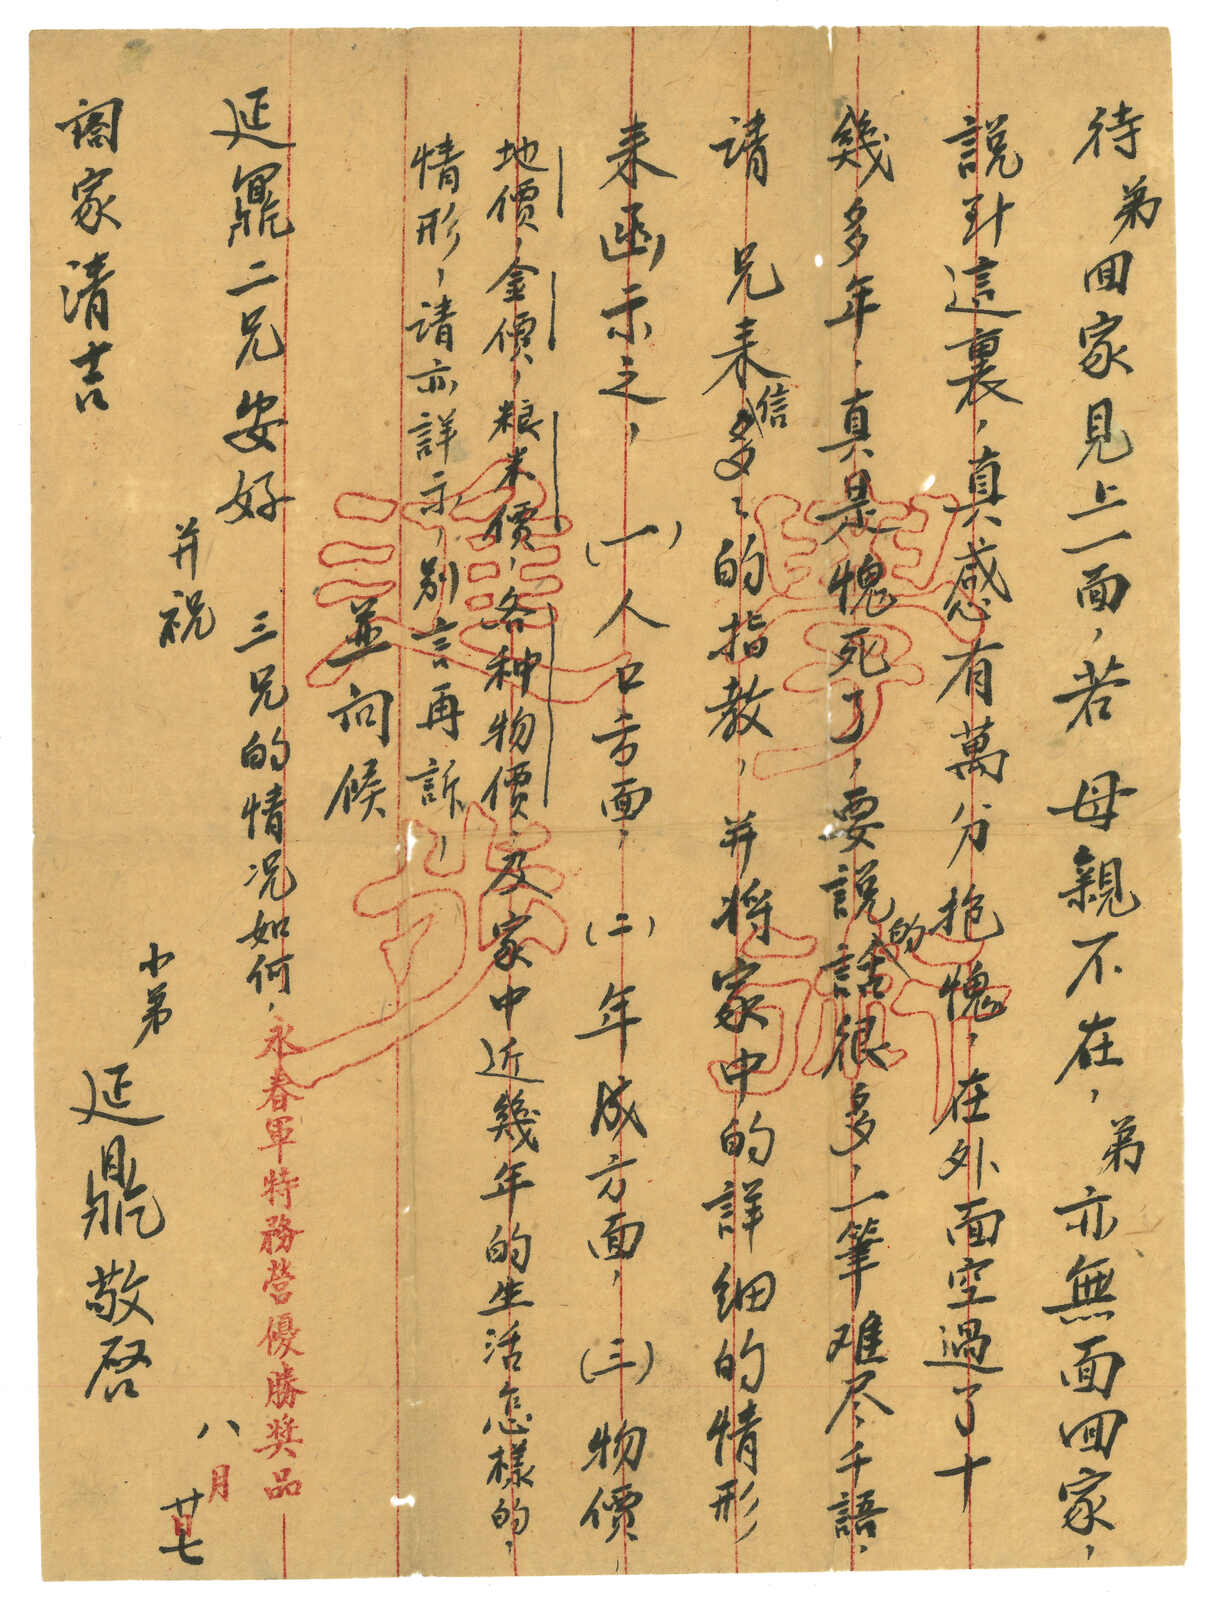 待弟回家見上一面，若　母親不在，弟亦無面回家，
說到這裏，真感有萬分抱愧，在外面空過了十
幾多年，真是愧死了，要說的話很多，一筆难尽千語，
請　兄来信多々的指教，并將家中的詳细的情形
来函示之，(一)人口方面，(二)年成方面，(三)物價，
地價，金價，粮米價，各种物價，及家中近幾年的生活怎樣的，
情形，請亦詳示，别言再訴，
並问候
延鼐二兄安好　三兄的情况如何，
永春軍特務營優勝奖品
并祝
閤家清吉
小弟　延鼎敬啓
八月廿七日